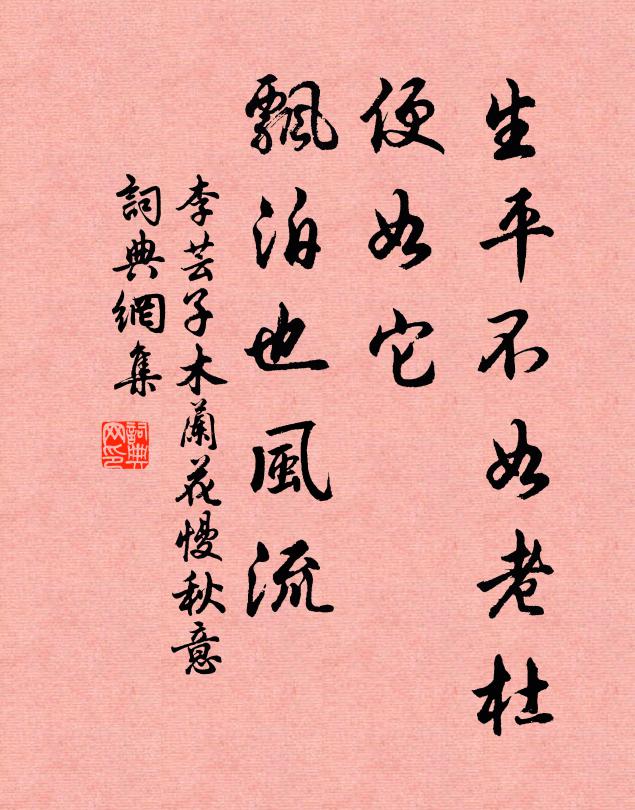 生平不如老杜
便如它
飄泊也風流
李芸子木蘭花慢秋意
詞典網集
詞典网印